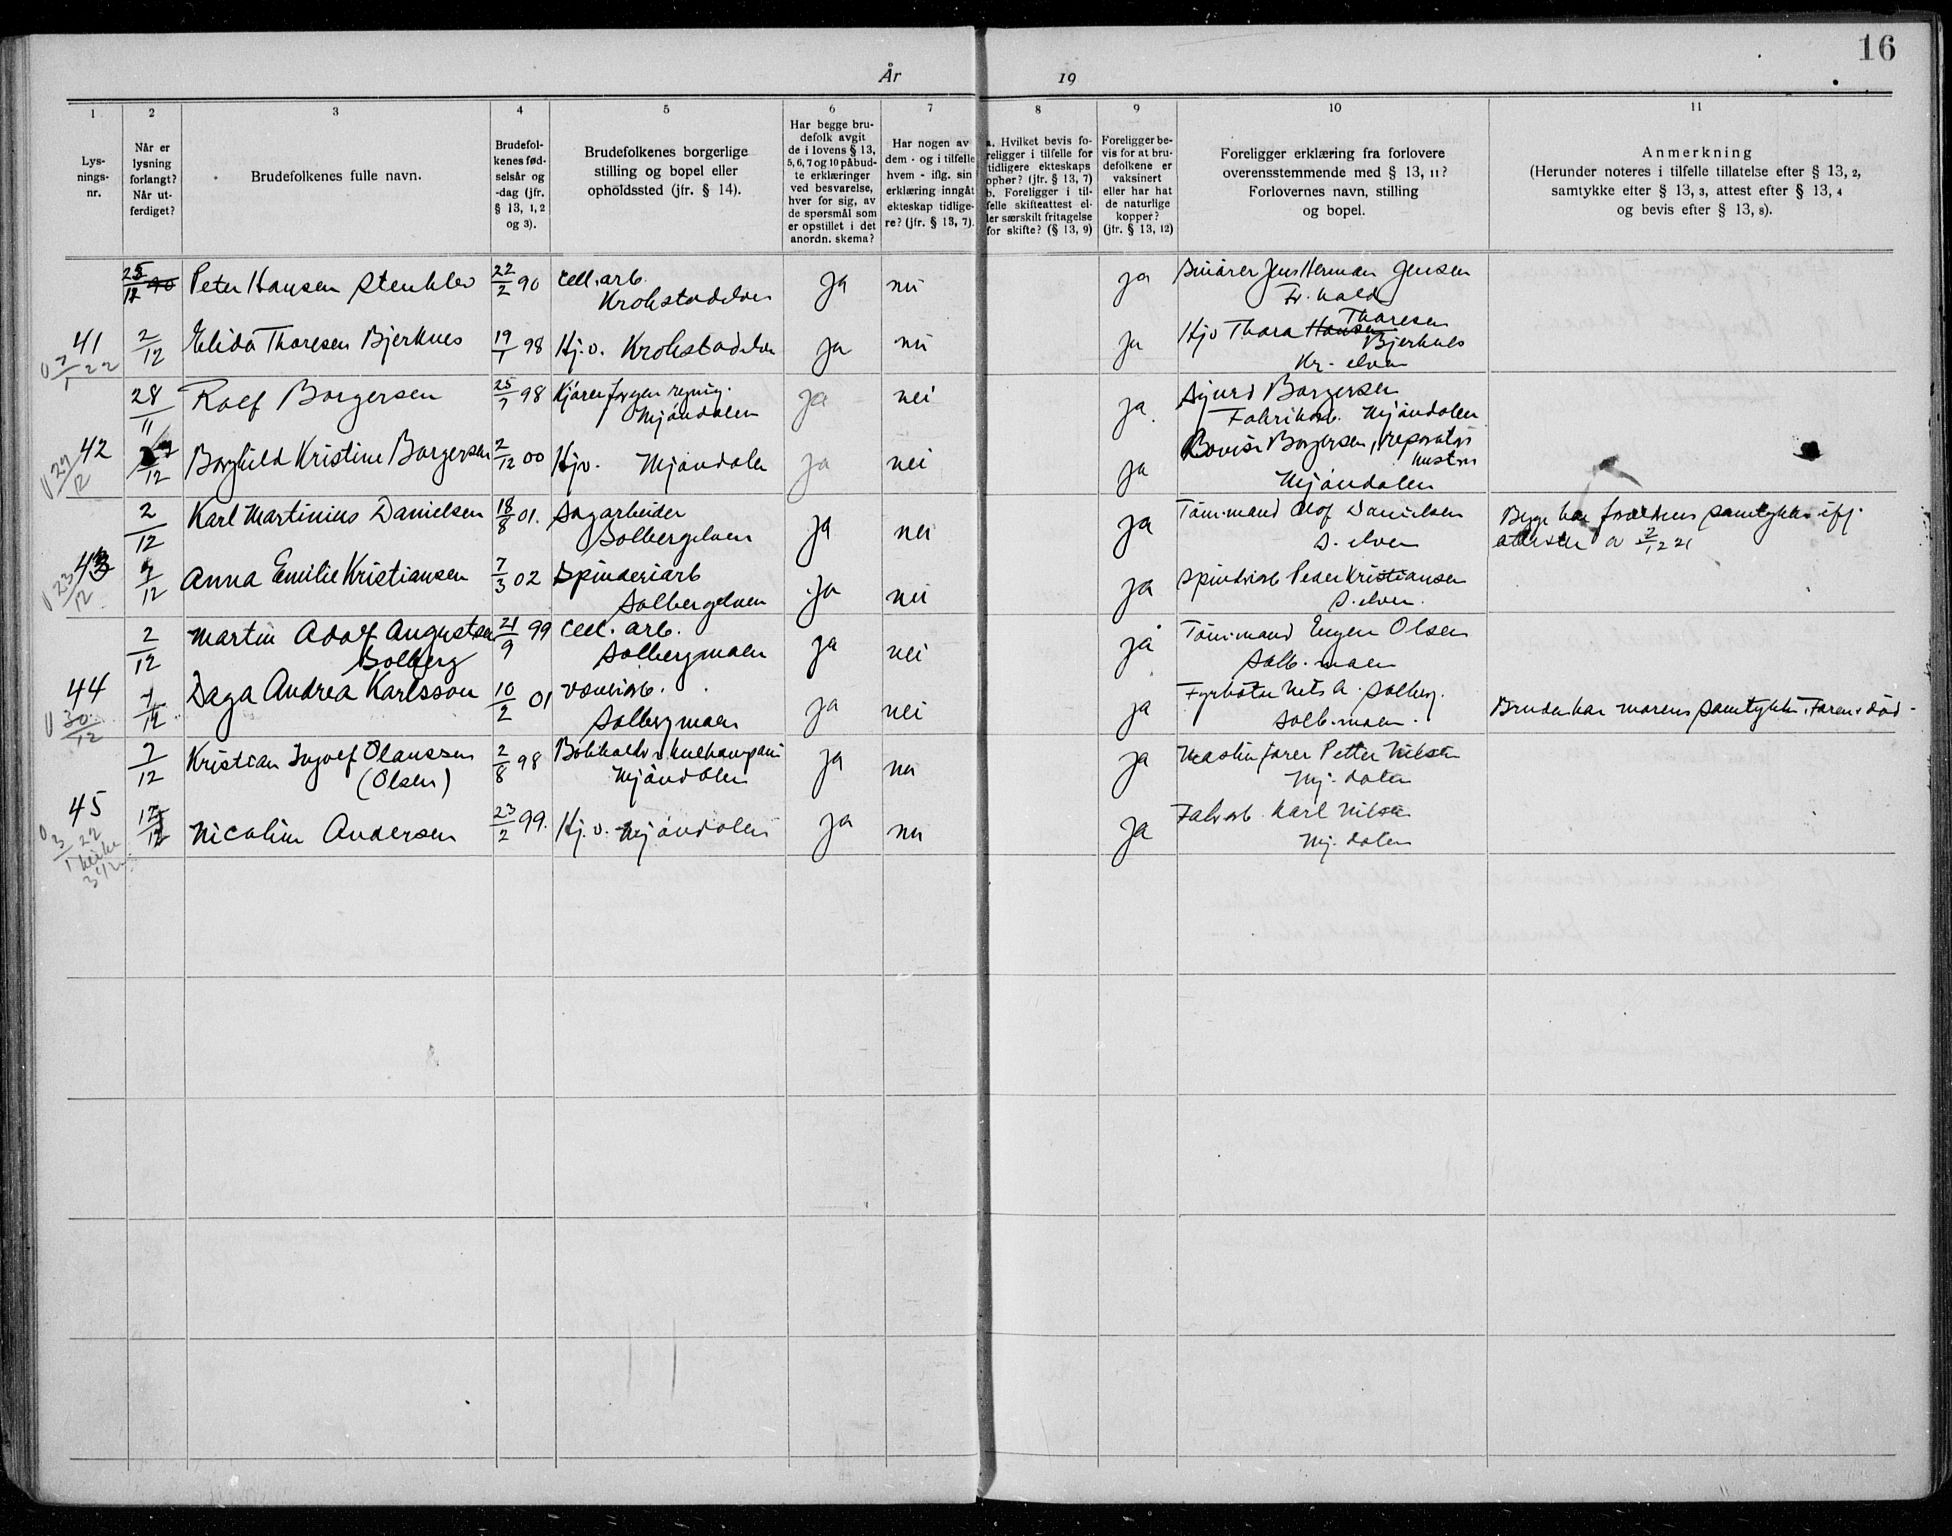 16
År 19
1
2
3
4
5
6
7
8
9
10
11
Lys-
nings-
nr.
Når er
lysning
forlangt?
Når ut-
ferdiget?
Brudefolkenes fulle navn.
Brudefol-
kenes fød-
selsår og
-dag (jfr.
§ 13, 1, 2
og 3).
Brudefolkenes borgerlige
stilling og bopel eller
opholdssted (jfr. § 14).
Har begge bru-
defolk avgit
de i lovens § 13,
5, 6, 7 og 10 påbud-
te erklæringer
ved besvarelse,
hver for sig, av
de spørsmål som
er opstillet i det
anordn. skema?
Har nogen av
dem - og i tilfelle
hvem - iflg. sin
erklæring inngått
ekteskap tidlige-
re? (jfr. § 13, 7).
a. Hvilket bevis fo-
religger i tilfelle for
tidligere ekteskaps
ophør? (jfr. § 13, 7)
b. Foreligger i til-
felle skifteattest el-
ler særskilt fritagelse
for skifte? (§ 13, 9)
Foreligger be-
vis for at bru-
defolkene er
vaksinert
eller har hat
de naturlige
kopper?
(jfr. § 13, 12)
Foreligger erklæring fra forlovere
overensstemmende med § 13, 11?
Forlovernes navn, stilling
og bopel.
Anmerkning
(Herunder noteres i tilfelle tillatelse efter § 13, 2,
samtykke efter § 13, 3, attest efter § 13, 4
og bevis efter § 13, 8).
Peter Hansen Stenklev 22/2 90 Cell. arb. ja nei ja Jens Herman Jensen
Krokstadelven Fr. hald
41 2/12 Elida Thoresen Bjerknes 19/1 98 Hj. v. Krokstadelven ja nei ja Hjv Thora Hansen Thoresen
Bjerknes
Kr. elven
28/11 Rolf Borgersen 25/7 98 Mjøndalen ja nei ja Sigurd Borgersen
Fabrikarb. Mjøndalen
42 Borghild Kristine Borgersen 2/12 00 Hjv. Mjøndalen ja nei ja Borgersen, reparatørs
hustru
Mjøndalen
2/12 Karl Martinius Danielsen 18/8 01. Sagarbeider ja nei ja Tømmand Olof Danielsen Begge har forældrenes samtykke ifl.
Solbergelven S. elven attester av 2/12 21
43 Anna Emilie Kristiansen 7/3 02 Spinderiarb ja nei ja Spinderiarb Peder Kristiansen
Solbergelven S. elven.
2/12 Martin Adolf Augustsen 21/9 99 Cell. arb. ja nei ja Tømmand Eugen Olsen
Solberg Solbergmoen Solb. moen
44 Daga Andrea Karlsson 10/2 01 ja nei ja Fyrbøter Nels A. Solberg.
30/12 Solbergmoen Solb. moen. Bruden har morens samtykke. Faren er død.
7/12 Kristian Ingolf Olaussen 2/8 98 ja nei ja Maskinfører Petter Nilsen
(Olsen) Mjøndalen Mj. dalen
45 Nicoline Andersen 23/2 99. Hj. v. Mjøndalen ja nei ja Fabr arb. Karl Nilsen
Mj. dalen